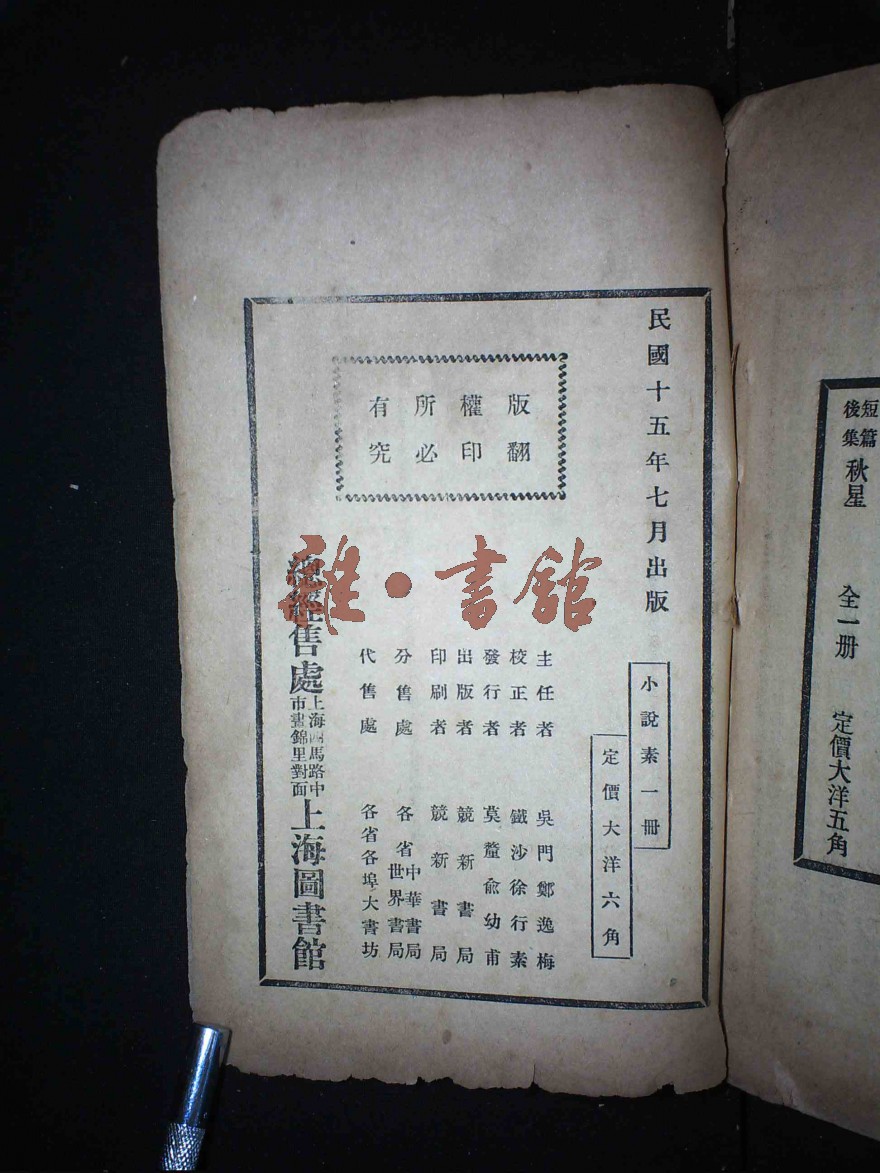 民國十五年七月出版
小說素一冊
定價大洋六角
版權所有
翻印必究
主任者 吳門鄭逸梅
校正者 鐵沙徐行素
發行者 莫釐俞幼甫
出版者 競新書局
印刷者 競新書局
分售處 各省中華書局世界書局
代售處 各省各埠大書坊
總經售處 上海四馬路中市晝錦里對面 上海圖書館
短篇後集 秋星 全一册 定價大洋五角
雜·書館